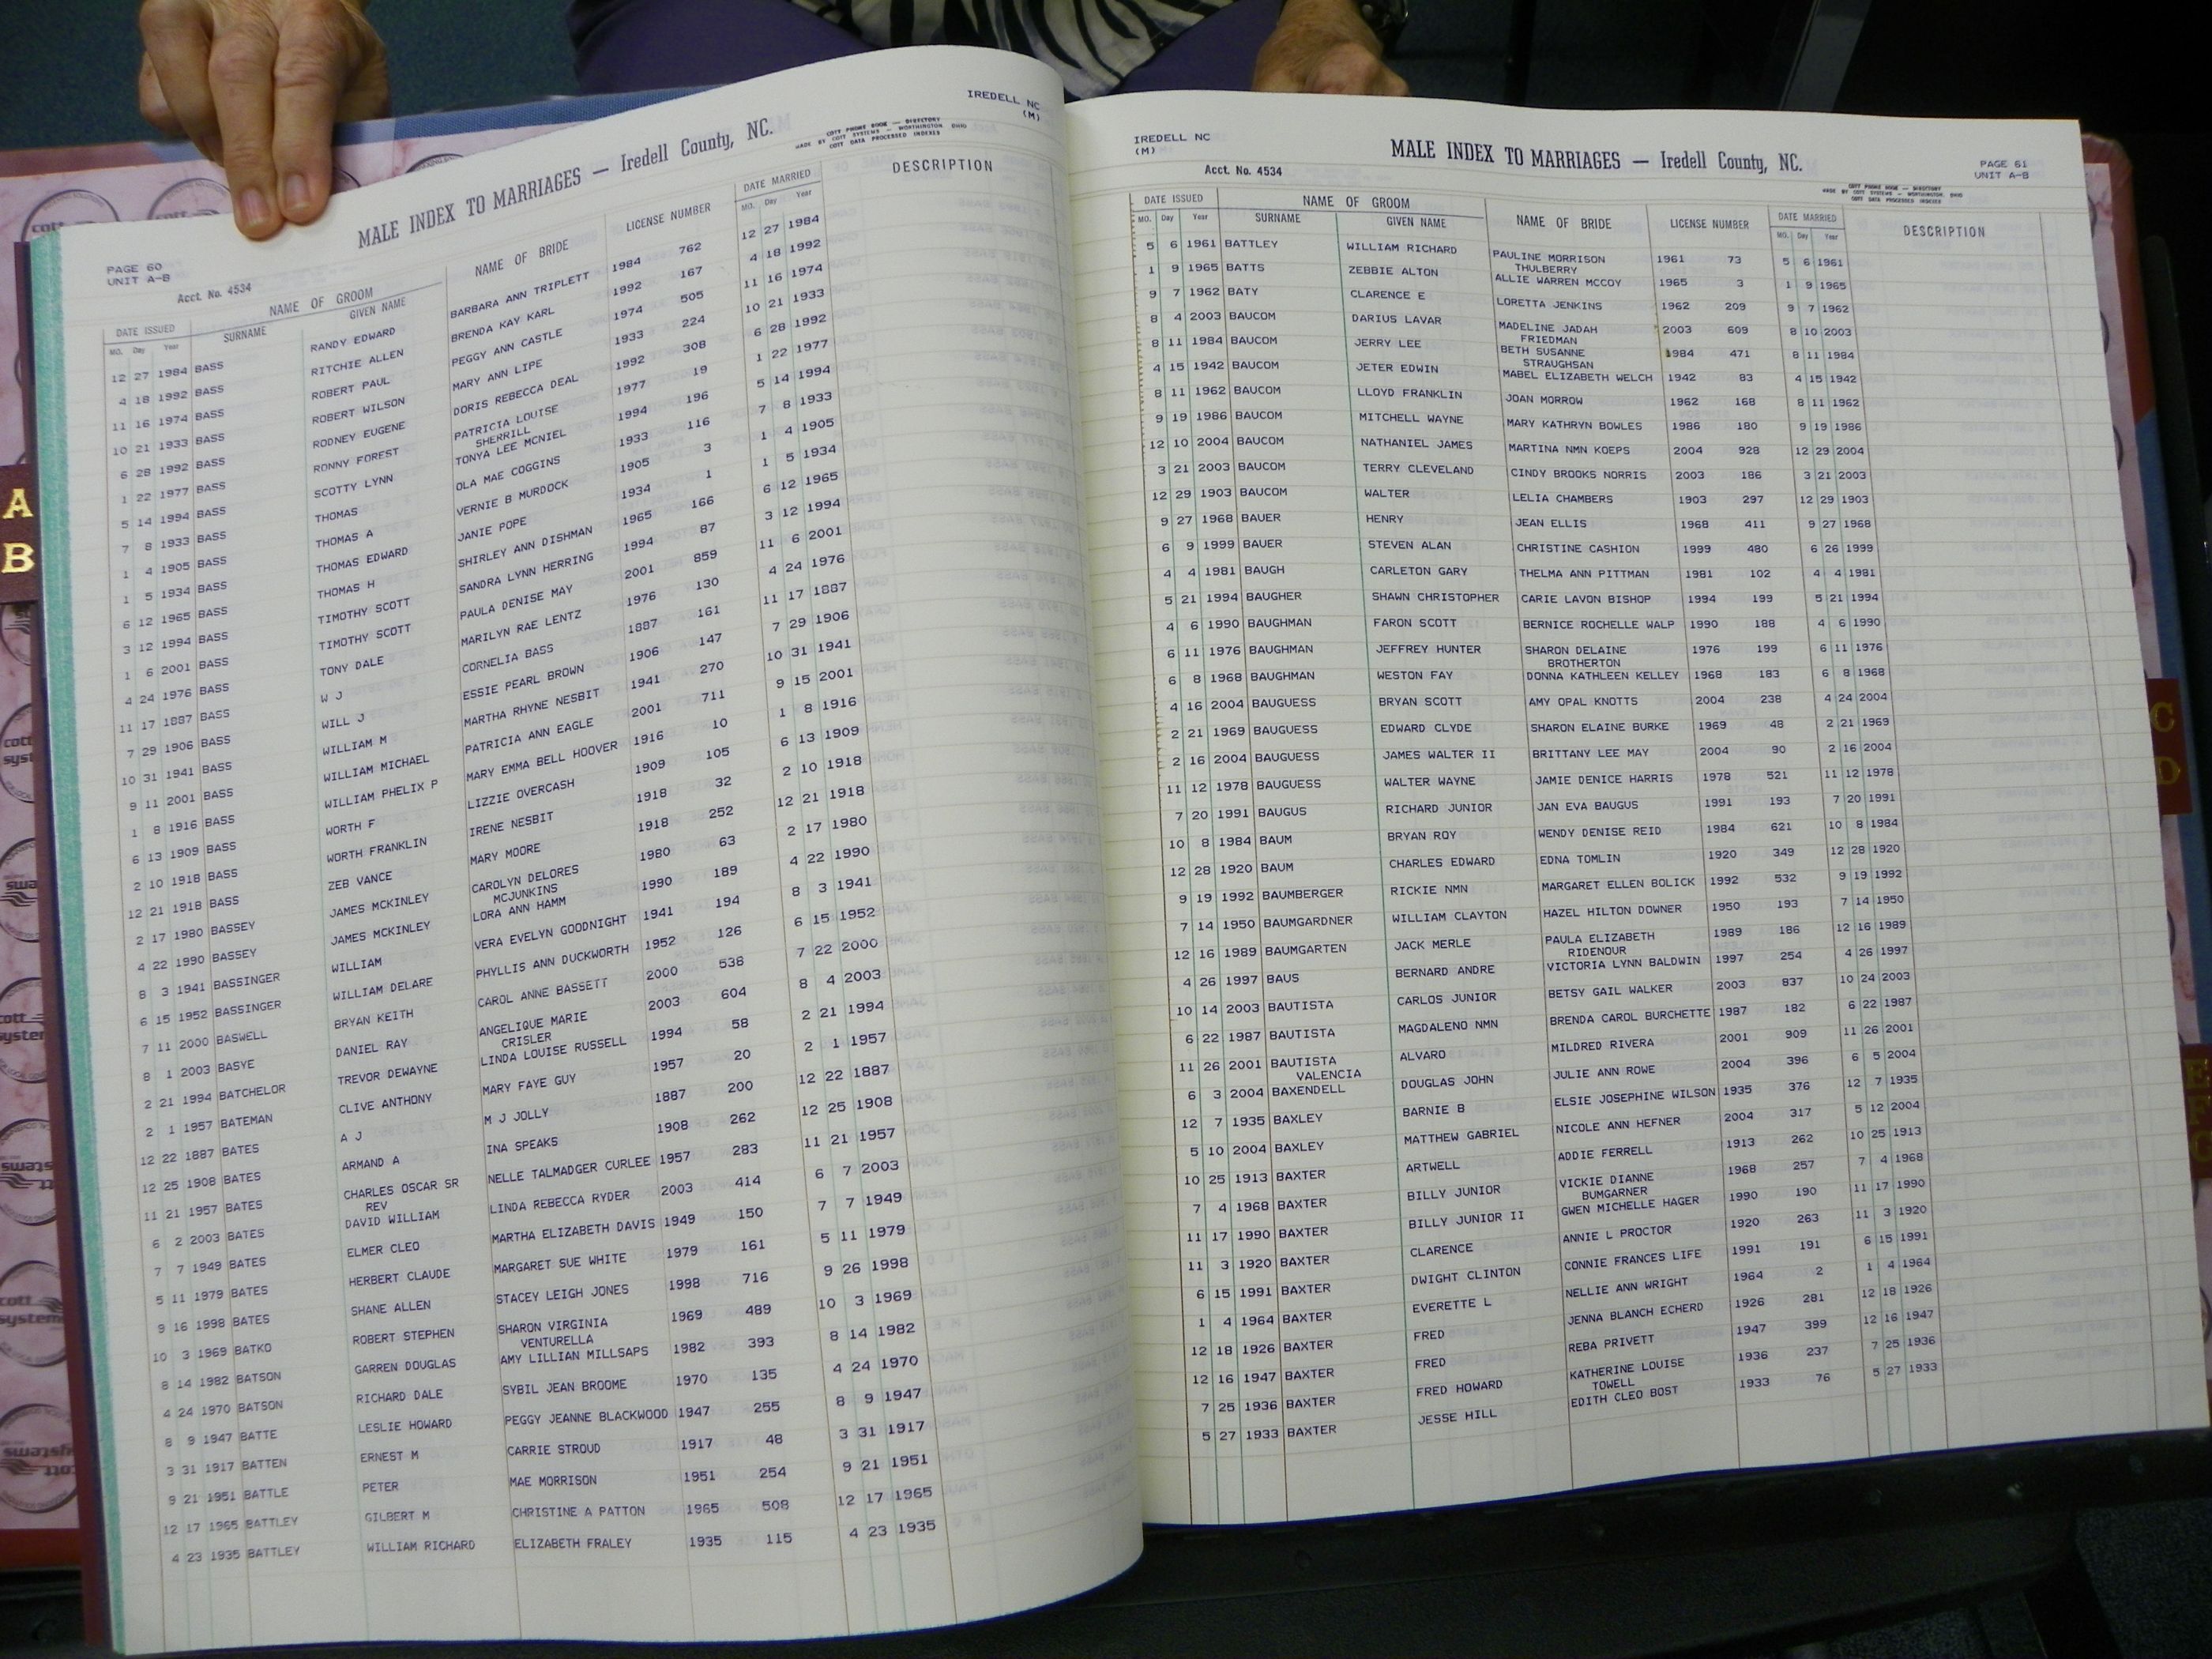 IREDELL NC
(M)
MALE INDEX TO MARRIAGES — Iredell County, NC.
COTT PHONE BOOK — DIRECTORY
MADE BY COTT SYSTEMS — WORTHINGTON OHIO
COTT DATA PROCESSED INDEXES
PAGE 60
UNIT A-B
Acct. No. 4534
DATE ISSUED NAME OF GROOM NAME OF BRIDE LICENSE NUMBER DATE MARRIED DESCRIPTION
MO. Day Year SURNAME GIVEN NAME MO. Day Year
12 27 1984 BASS RANDY EDWARD BARBARA ANN TRIPLETT 1984 762 12 27 1984
4 18 1992 BASS RITCHIE ALLEN BRENDA KAY KARL 1992 167 4 18 1992
11 16 1974 BASS ROBERT PAUL PEGGY ANN CASTLE 1974 505 11 16 1974
10 21 1933 BASS ROBERT WILSON MARY ANN LIPE 1933 224 10 21 1933
6 28 1992 BASS RODNEY EUGENE DORIS REBECCA DEAL 1992 308 6 28 1992
1 22 1977 BASS RONNY FOREST PATRICIA LOUISE 1977 19 1 22 1977
SHERRILL
5 14 1994 BASS SCOTTY LYNN TONYA LEE MCNIEL 1994 196 5 14 1994
7 8 1933 BASS THOMAS OLA MAE COGGINS 1933 116 7 8 1933
1 4 1905 BASS THOMAS A VERNIE B MURDOCK 1905 3 1 4 1905
1 5 1934 BASS THOMAS EDWARD JANIE POPE 1934 1 1 5 1934
6 12 1965 BASS THOMAS H SHIRLEY ANN DISHMAN 1965 166 6 12 1965
3 12 1994 BASS TIMOTHY SCOTT SANDRA LYNN HERRING 1994 87 3 12 1994
1 6 2001 BASS TIMOTHY SCOTT PAULA DENISE MAY 2001 859 11 6 2001
4 24 1976 BASS TONY DALE MARILYN RAE LENTZ 1976 130 4 24 1976
11 17 1887 BASS W J CORNELIA BASS 1887 161 11 17 1887
7 29 1906 BASS WILL J ESSIE PEARL BROWN 1906 147 7 29 1906
10 31 1941 BASS WILLIAM M MARTHA RHYNE NESBIT 1941 270 10 31 1941
9 11 2001 BASS WILLIAM MICHAEL PATRICIA ANN EAGLE 2001 711 9 15 2001
1 8 1916 BASS WILLIAM PHELIX P MARY EMMA BELL HOOVER 1916 10 1 8 1916
6 13 1909 BASS WORTH F LIZZIE OVERCASH 1909 105 6 13 1909
2 10 1918 BASS WORTH FRANKLIN IRENE NESBIT 1918 32 2 10 1918
12 21 1918 BASS ZEB VANCE MARY MOORE 1918 252 12 21 1918
2 17 1980 BASSEY JAMES MCKINLEY CAROLYN DELORES 1980 63 2 17 1980
MCJUNKINS
4 22 1990 BASSEY JAMES MCKINLEY LORA ANN HAMM 1990 189 4 22 1990
8 3 1941 BASSINGER WILLIAM VERA EVELYN GOODNIGHT 1941 194 8 3 1941
6 15 1952 BASSINGER WILLIAM DELARE PHYLLIS ANN DUCKWORTH 1952 126 6 15 1952
7 11 2000 BASWELL BRYAN KEITH CAROL ANNE BASSETT 2000 538 7 22 2000
8 1 2003 BASYE DANIEL RAY ANGELIQUE MARIE 2003 604 8 4 2003
CRISLER
2 21 1994 BATCHELOR TREVOR DEWAYNE LINDA LOUISE RUSSELL 1994 58 2 21 1994
2 1 1957 BATEMAN CLIVE ANTHONY MARY FAYE GUY 1957 20 2 1 1957
12 22 1887 BATES A J M J JOLLY 1887 200 12 22 1887
12 25 1908 BATES ARMAND A INA SPEAKS 1908 262 12 25 1908
11 21 1957 BATES CHARLES OSCAR SR NELLE TALMADGER CURLEE 1957 283 11 21 1957
REV
6 2 2003 BATES DAVID WILLIAM LINDA REBECCA RYDER 2003 414 6 7 2003
7 7 1949 BATES ELMER CLEO MARTHA ELIZABETH DAVIS 1949 150 7 7 1949
5 11 1979 BATES HERBERT CLAUDE MARGARET SUE WHITE 1979 161 5 11 1979
9 16 1998 BATES SHANE ALLEN STACEY LEIGH JONES 1998 716 9 26 1998
10 3 1969 BATKO ROBERT STEPHEN SHARON VIRGINIA 1969 489 10 3 1969
VENTURELLA
8 14 1982 BATSON GARREN DOUGLAS AMY LILLIAN MILLSAPS 1982 393 8 14 1982
4 24 1970 BATSON RICHARD DALE SYBIL JEAN BROOME 1970 135 4 24 1970
8 9 1947 BATTE LESLIE HOWARD PEGGY JEANNE BLACKWOOD 1947 255 8 9 1947
3 31 1917 BATTEN ERNEST M CARRIE STROUD 1917 48 3 31 1917
9 21 1951 BATTLE PETER MAE MORRISON 1951 254 9 21 1951
12 17 1965 BATTLEY GILBERT M CHRISTINE A PATTON 1965 508 12 17 1965
4 23 1935 BATTLEY WILLIAM RICHARD ELIZABETH FRALEY 1935 115 4 23 1935
IREDELL NC
(M)
MALE INDEX TO MARRIAGES — Iredell County, NC.
PAGE 61
UNIT A-B
Acct. No. 4534
COTT PHONE BOOK — DIRECTORY
MADE BY COTT SYSTEMS — WORTHINGTON, OHIO
COTT DATA PROCESSED INDEXES
DATE ISSUED NAME OF GROOM NAME OF BRIDE LICENSE NUMBER DATE MARRIED DESCRIPTION
MO. Day Year SURNAME GIVEN NAME MO. Day Year
5 6 1961 BATTLEY WILLIAM RICHARD PAULINE MORRISON 1961 73 5 6 1961
THULBERRY
1 9 1965 BATTS ZEBBIE ALTON ALLIE WARREN MCCOY 1965 3 1 9 1965
9 7 1962 BATY CLARENCE E LORETTA JENKINS 1962 209 9 7 1962
8 4 2003 BAUCOM DARIUS LAVAR MADELINE JADAH 2003 609 8 10 2003
FRIEDMAN
8 11 1984 BAUCOM JERRY LEE BETH SUSANNE 1984 471 8 11 1984
STRAUGHSAN
4 15 1942 BAUCOM JETER EDWIN MABEL ELIZABETH WELCH 1942 83 4 15 1942
8 11 1962 BAUCOM LLOYD FRANKLIN JOAN MORROW 1962 168 8 11 1962
9 19 1986 BAUCOM MITCHELL WAYNE MARY KATHRYN BOWLES 1986 180 9 19 1986
12 10 2004 BAUCOM NATHANIEL JAMES MARTINA NMN KOEPS 2004 928 12 29 2004
3 21 2003 BAUCOM TERRY CLEVELAND CINDY BROOKS NORRIS 2003 186 3 21 2003
12 29 1903 BAUCOM WALTER LELIA CHAMBERS 1903 297 12 29 1903
9 27 1968 BAUER HENRY JEAN ELLIS 1968 411 9 27 1968
6 9 1999 BAUER STEVEN ALAN CHRISTINE CASHION 1999 480 6 26 1999
4 4 1981 BAUGH CARLETON GARY THELMA ANN PITTMAN 1981 102 4 4 1981
5 21 1994 BAUGHER SHAWN CHRISTOPHER CARIE LAVON BISHOP 1994 199 5 21 1994
4 6 1990 BAUGHMAN FARON SCOTT BERNICE ROCHELLE WALP 1990 188 4 6 1990
6 11 1976 BAUGHMAN JEFFREY HUNTER SHARON DELAINE 1976 199 6 11 1976
BROTHERTON
6 8 1968 BAUGHMAN WESTON FAY DONNA KATHLEEN KELLEY 1968 183 6 8 1968
4 16 2004 BAUGUESS BRYAN SCOTT AMY OPAL KNOTTS 2004 238 4 24 2004
2 21 1969 BAUGUESS EDWARD CLYDE SHARON ELAINE BURKE 1969 48 2 21 1969
2 16 2004 BAUGUESS JAMES WALTER II BRITTANY LEE MAY 2004 90 2 16 2004
11 12 1978 BAUGUESS WALTER WAYNE JAMIE DENICE HARRIS 1978 521 11 12 1978
7 20 1991 BAUGUS RICHARD JUNIOR JAN EVA BAUGUS 1991 193 7 20 1991
10 8 1984 BAUM BRYAN ROY WENDY DENISE REID 1984 621 10 8 1984
12 28 1920 BAUM CHARLES EDWARD EDNA TOMLIN 1920 349 12 28 1920
9 19 1992 BAUMBERGER RICKIE NMN MARGARET ELLEN BOLICK 1992 532 9 19 1992
7 14 1950 BAUMGARDNER WILLIAM CLAYTON HAZEL HILTON DOWNER 1950 193 7 14 1950
12 16 1989 BAUMGARTEN JACK MERLE PAULA ELIZABETH 1989 186 12 16 1989
RIDENOUR
4 26 1997 BAUS BERNARD ANDRE VICTORIA LYNN BALDWIN 1997 254 4 26 1997
10 14 2003 BAUTISTA CARLOS JUNIOR BETSY GAIL WALKER 2003 837 10 24 2003
6 22 1987 BAUTISTA MAGDALENO NMN BRENDA CAROL BURCHETTE 1987 182 6 22 1987
11 26 2001 BAUTISTA ALVARO MILDRED RIVERA 2001 909 11 26 2001
VALENCIA
6 3 2004 BAXENDELL DOUGLAS JOHN JULIE ANN ROWE 2004 396 6 5 2004
12 7 1935 BAXLEY BARNIE B ELSIE JOSEPHINE WILSON 1935 376 12 7 1935
5 10 2004 BAXLEY MATTHEW GABRIEL NICOLE ANN HEFNER 2004 317 5 12 2004
10 25 1913 BAXTER ARTWELL ADDIE FERRELL 1913 262 10 25 1913
7 4 1968 BAXTER BILLY JUNIOR VICKIE DIANNE 1968 257 7 4 1968
BUMGARNER
11 17 1990 BAXTER BILLY JUNIOR II GWEN MICHELLE HAGER 1990 190 11 17 1990
11 3 1920 BAXTER CLARENCE ANNIE L PROCTOR 1920 263 11 3 1920
6 15 1991 BAXTER DWIGHT CLINTON CONNIE FRANCES LIFE 1991 191 6 15 1991
1 4 1964 BAXTER EVERETTE L NELLIE ANN WRIGHT 1964 2 1 4 1964
12 18 1926 BAXTER FRED JENNA BLANCH ECHERD 1926 281 12 18 1926
12 16 1947 BAXTER FRED REBA PRIVETT 1947 399 12 16 1947
7 25 1936 BAXTER FRED HOWARD KATHERINE LOUISE 1936 237 7 25 1936
TOWELL
5 27 1933 BAXTER JESSE HILL EDITH CLEO BOST 1933 76 5 27 1933
A
B
C
D
cott
systems